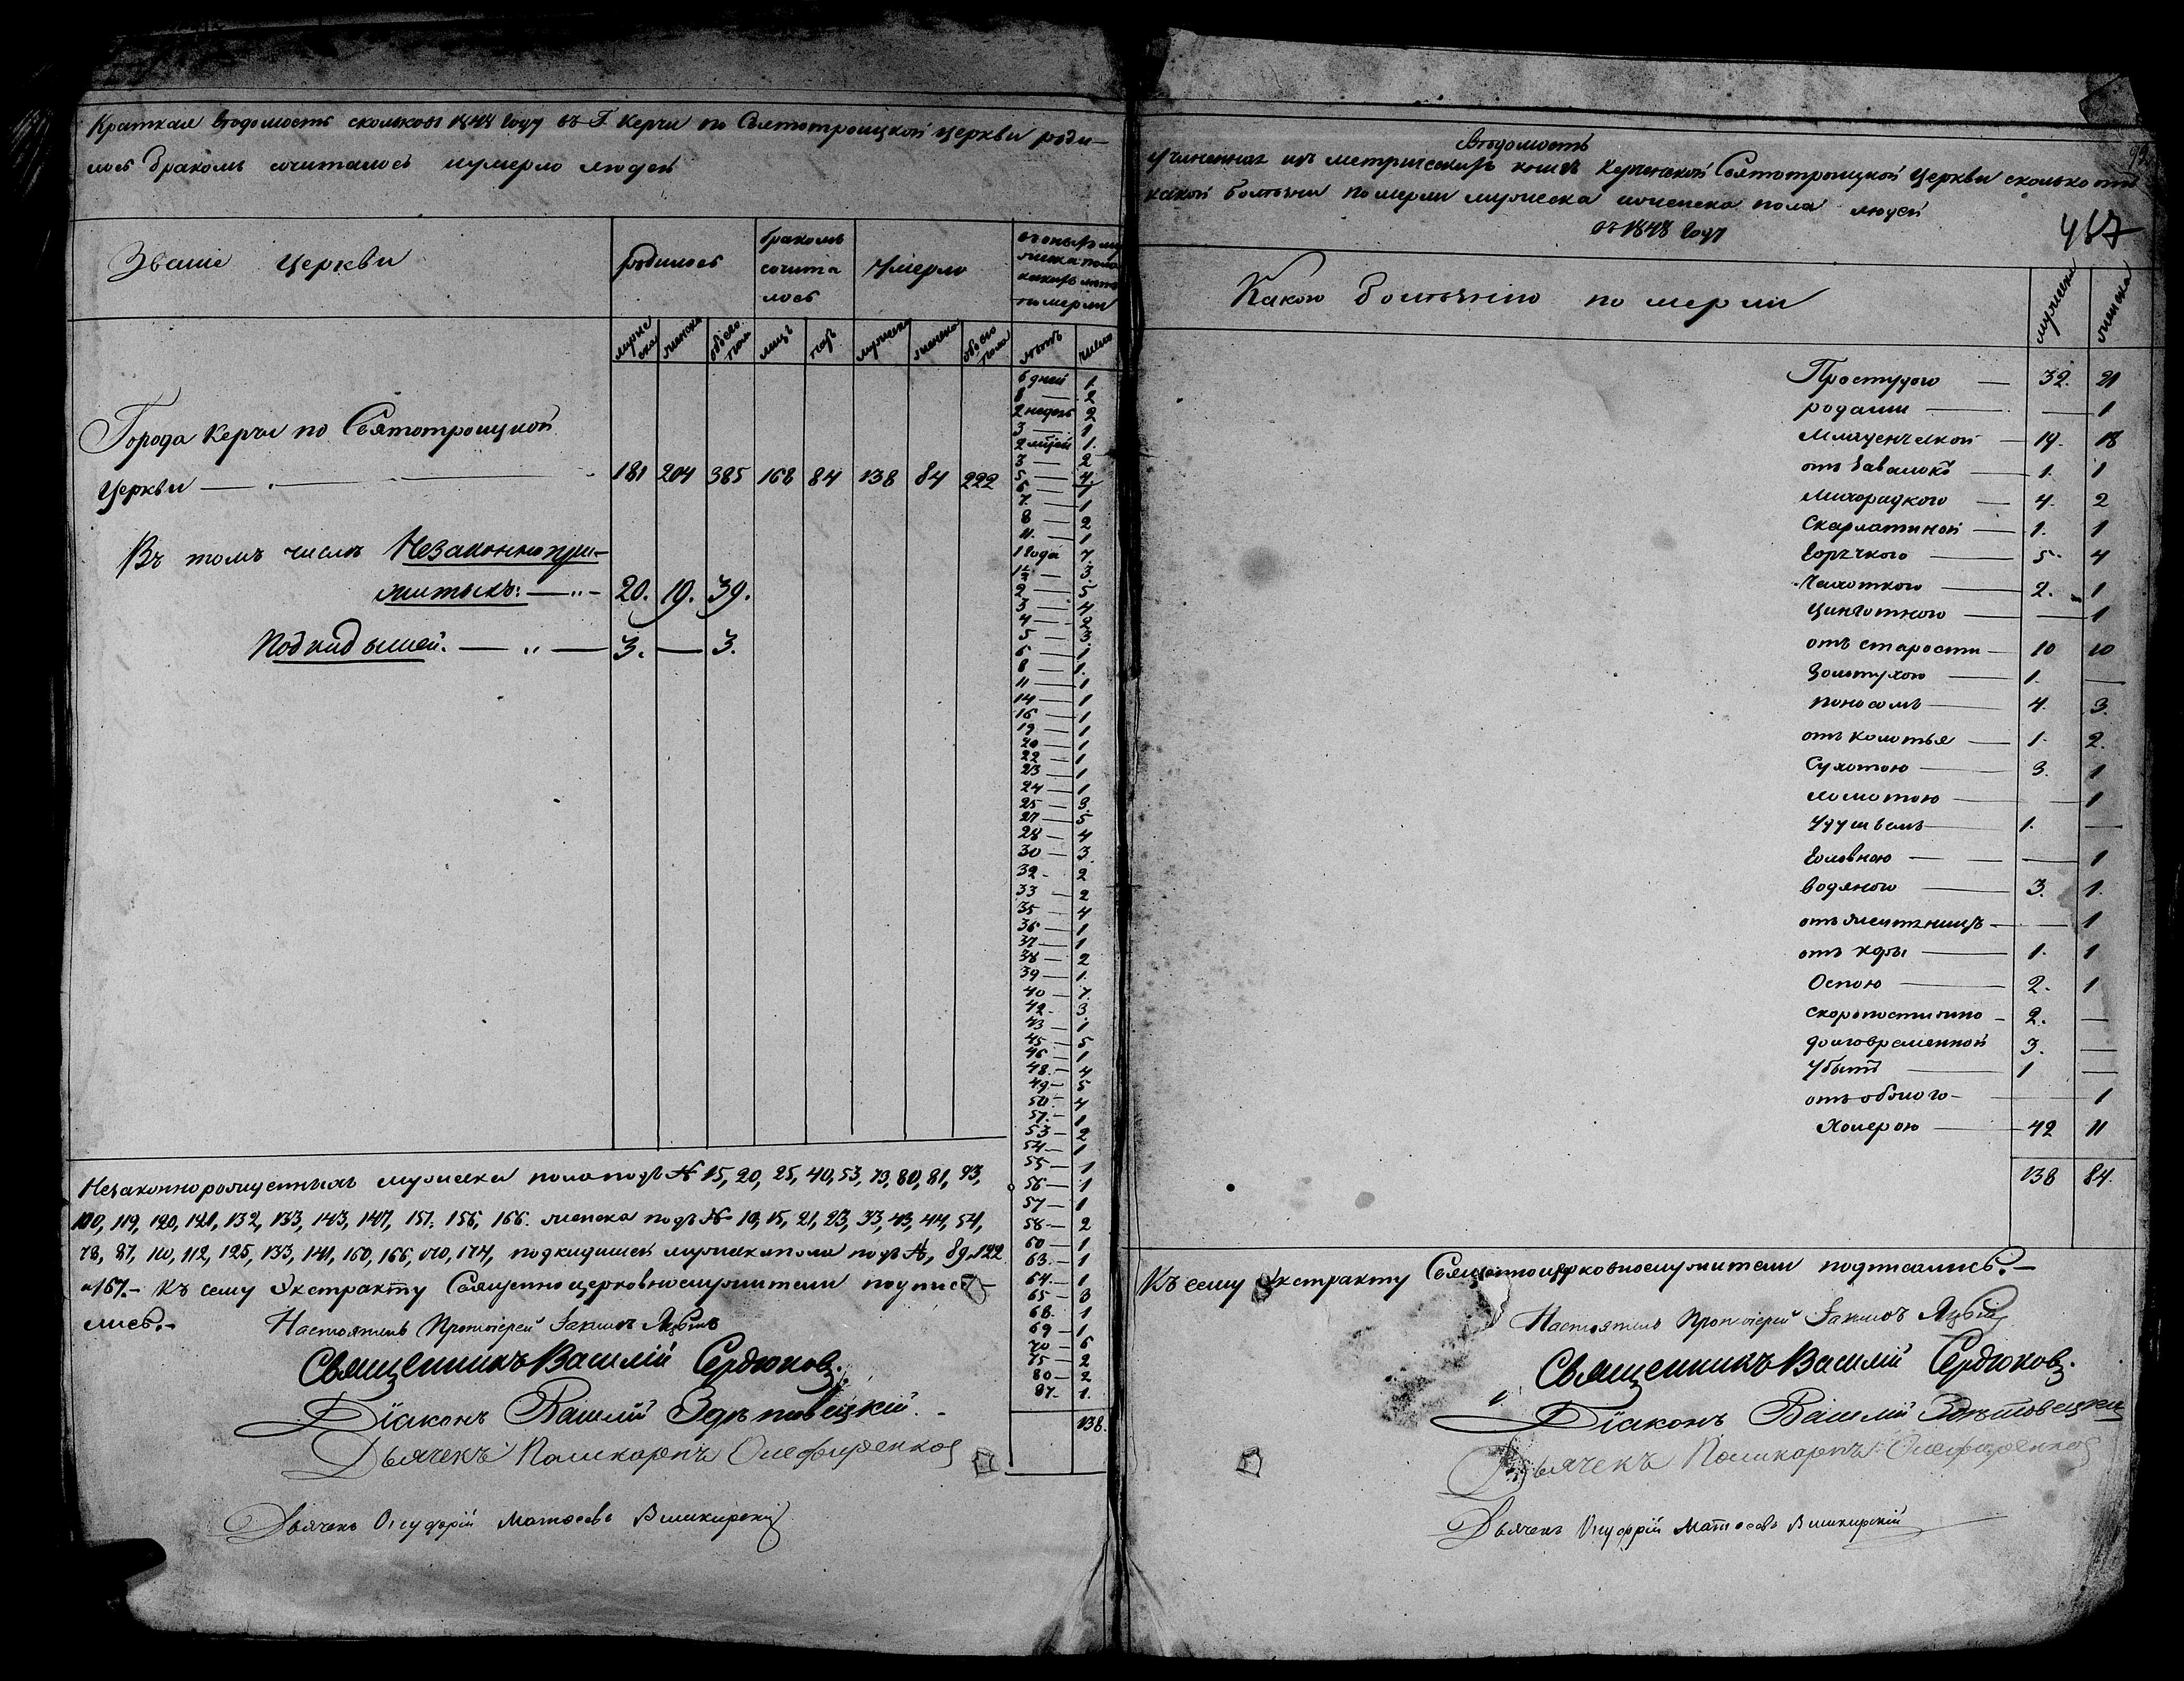 Краткая вѣдомость сколько въ 1848 году въ Г. Керчи по Святотроицкой церкви роди-
лось бракомъ сочиталось и умерло людей
Званіе церкви
родилось
бракомъ
сочита
лось
умерло
померли
мужеска
женска
обоего пола
лицъ
паръ
мужеска
женска
обоего пола
лѣтъ
число
Города Керчи по Святотроицкой
церкви — 181 204 385 168 84 138 84 222
Въ томъ числѣ Незаконнопри-
житыхъ: —"— 20. 19. 39.
Подкидышей. — " — 3. — 3.
6 дней 1.
8 — 2
2 недель 2
3 — 1
2 мѣсяц 1.
3 — 2
5 — 4
6 — 1
7. — 1
8 — 2
11. — 1
1 года 7.
1½ — 3.
2 — 5
3 — 4
4 — 2
5 — 3
6 — 1
8 — 1.
11 — 1
14 — 1
16 — 1
19 — 1
20 — 1
22 — 1
23 — 1
24 — 1
25 — 3.
27 — 5
28 — 4
30 — 3
32 - 2
33 — 2
35 — 4
36 — 1
37 — 1
38 — 2
39 — 1.
40 — 7.
42. — 3
43 — 1
45 — 5
46 — 1
48. — 4
49 — 5
50. — 4
51. — 1
53 — 2
54 — 1
55 — 1
56 — 1
57 — 1
58 — 2
60 — 1
63. — 1
64. — 1
65 — 3
68. 1
69 — 1
70 — 6
75 — 2
80 — 2
87. — 1.
138.
Незаконнорожденныхъ мужеска пола подъ № 15, 20, 25, 40, 53, 79, 80, 81, 93,
100, 119, 120, 121, 132, 133, 143, 147, 151, 156, 166. женска подъ № 10, 15, 21, 23, 33, 43, 44, 54,
78, 87, 110, 112, 125, 133, 141, 160, 166, 170, 174, подкидышей мужеска пола подъ №, 89, 122
и 167. — Къ сему Экстракту Священноцерковнослужители подписа-
лись. —
Настоятель Протоіерей
Священникъ Василій Сердюковъ.
Діаконъ Василій
Дьячекъ Поликарпъ Олефиренковъ
Дьячекъ Онуфрій Матвеевъ
Вѣдомость
Учиненная изъ метрическихъ книгъ Керченской Святотроицкой церкви сколько отъ
какой болѣзни померли мужеска и женска пола людей
въ 1848 году
457
92
Какою болѣзнію померли
мужеска
женска
Простудою — 32. 21
родами — — 1
Младенческой — 19. 18
отъ — 1. 1
Лихорадкою — 4. 2
Скарлатиной — 1. 1
Горячкою — 5. 4
Чахоткою — 2. 1
Цинготною — — 1
отъ старости — 10 10
Золотухою — 1. —
поносомъ — 4. 3.
отъ колотья — 1. 2.
Сухотою — 3. 1
ломотою — — 1
Удушьемъ — 1. —
Головною — — 1
водяною — 3. 1.
— — 1
отъ — 1. 1
Оспою — 2. 1
скоропостижно — 2. —
долговременной 3. —
Убитъ — 1 —
отъ — — 1
Холерою — 42 11
138 84.
Къ сему Экстракту Священноцерковнослужители подписались. —
Настоятель Протоіерей
Священникъ Василій Сердюковъ.
Діаконъ Василій
Дьячекъ Поликарпъ Олефиренковъ
Дьячекъ Онуфрій Матвеевъ